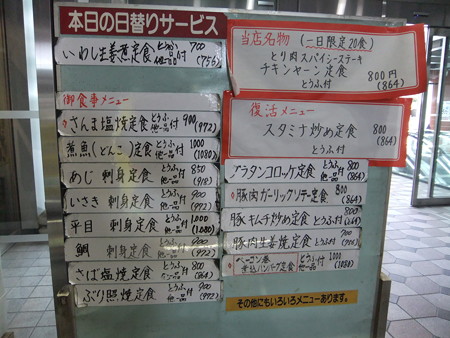 本日の日替りサービス
いわし生姜煮定食 とうふ 他一品付 700 (756)
御食事メニュー
さんま塩焼定食 とうふ 他一品付 900 (972)
煮魚(どんこ)定食 とうふ 他一品付 1000 (1080)
あじ 刺身定食 とうふ 他一品付 850 (918)
いさき 刺身定食 とうふ 他一品付 900 (972)
平目 刺身定食 とうふ 他一品付 1000 (1080)
鯛 刺身定食 とうふ 他一品付 900 (972)
さば塩焼定食 とうふ 他一品付 800 (864)
ぶり照焼定食 とうふ 他一品付 900 (972)
当店名物 (一日限定20食)
とり肉スパイシーステーキ
チキンヤーン定食 800円
とうふ付 (864)
復活メニュー
スタミナ炒め定食 800
とうふ付 (864)
グラタンコロッケ定食 とうふ 他一品付 800 (864)
豚肉ガーリックソテー定食 800 (864)
豚キムチ炒め定食 とうふ付 800 (864)
豚肉生姜焼定食 とうふ付
ベーコン巻
煮込ハンバーグ定食 とうふ 他一品付 1000 (1080)
その他にもいろいろメニューあります。